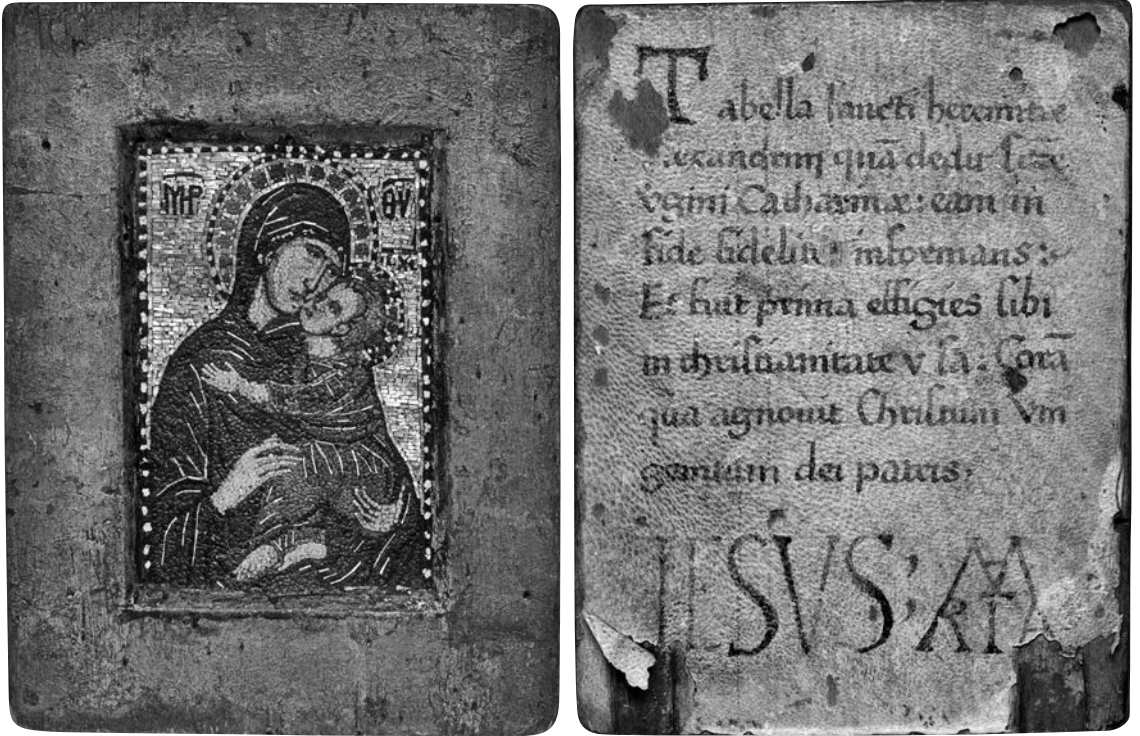 ΜΡ ΘV
IC XC
Tabella sancti heremitae
quā dedit
v̄gini Catharinæ: eam in
fide informans:
Et fuit prima effigies sibi
in christianitate v̄sa: Corā
qua agnovit Christum Vni
genitum dei patris.
IESVS: MARIA